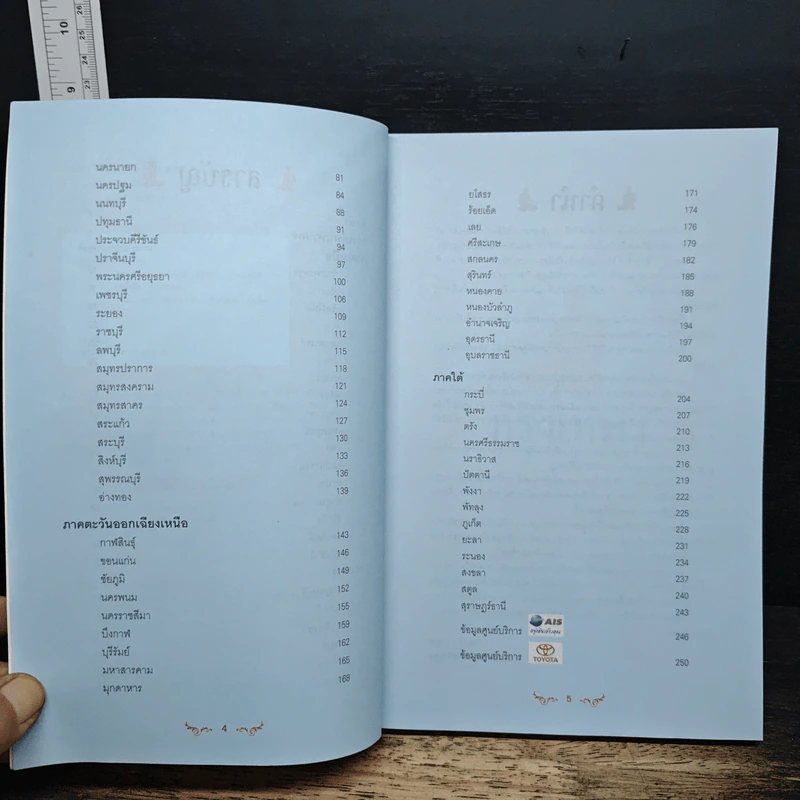 10
26
25
24
9
23
นครนายก 81
นครปฐม 84
นนทบุรี 88
ปทุมธานี 91
ประจวบคีรีขันธ์ 94
ปราจีนบุรี 97
พระนครศรีอยุธยา 100
เพชรบุรี 106
ระยอง 109
ราชบุรี 112
ลพบุรี 115
สมุทรปราการ 118
สมุทรสงคราม 121
สมุทรสาคร 124
สระแก้ว 127
สระบุรี 130
สิงห์บุรี 133
สุพรรณบุรี 136
อ่างทอง 139
ภาคตะวันออกเฉียงเหนือ
กาฬสินธุ์ 143
ขอนแก่น 146
ชัยภูมิ 149
นครพนม 152
นครราชสีมา 155
บึงกาฬ 159
บุรีรัมย์ 162
มหาสารคาม 165
มุกดาหาร 168
4
ยโสธร 171
ร้อยเอ็ด 174
เลย 176
ศรีสะเกษ 179
สกลนคร 182
สุรินทร์ 185
หนองคาย 188
หนองบัวลำภู 191
อำนาจเจริญ 194
อุดรธานี 197
อุบลราชธานี 200
ภาคใต้
กระบี่ 204
ชุมพร 207
ตรัง 210
นครศรีธรรมราช 213
นราธิวาส 216
ปัตตานี 219
พังงา 222
พัทลุง 225
ภูเก็ต 228
ยะลา 231
ระนอง 234
สงขลา 237
สตูล 240
สุราษฎร์ธานี 243
ข้อมูลศูนย์บริการ AIS 246
ข้อมูลศูนย์บริการ TOYOTA 250
5